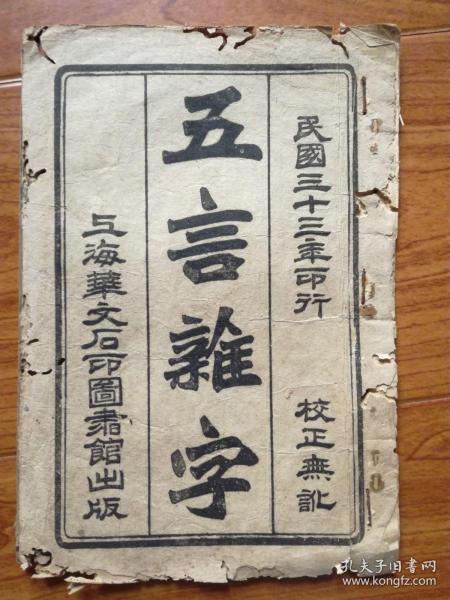 民國三十三年印行
校正無訛
五言雜字
上海華文石印圖書館出版
孔夫子旧书网
www.kongfz.com